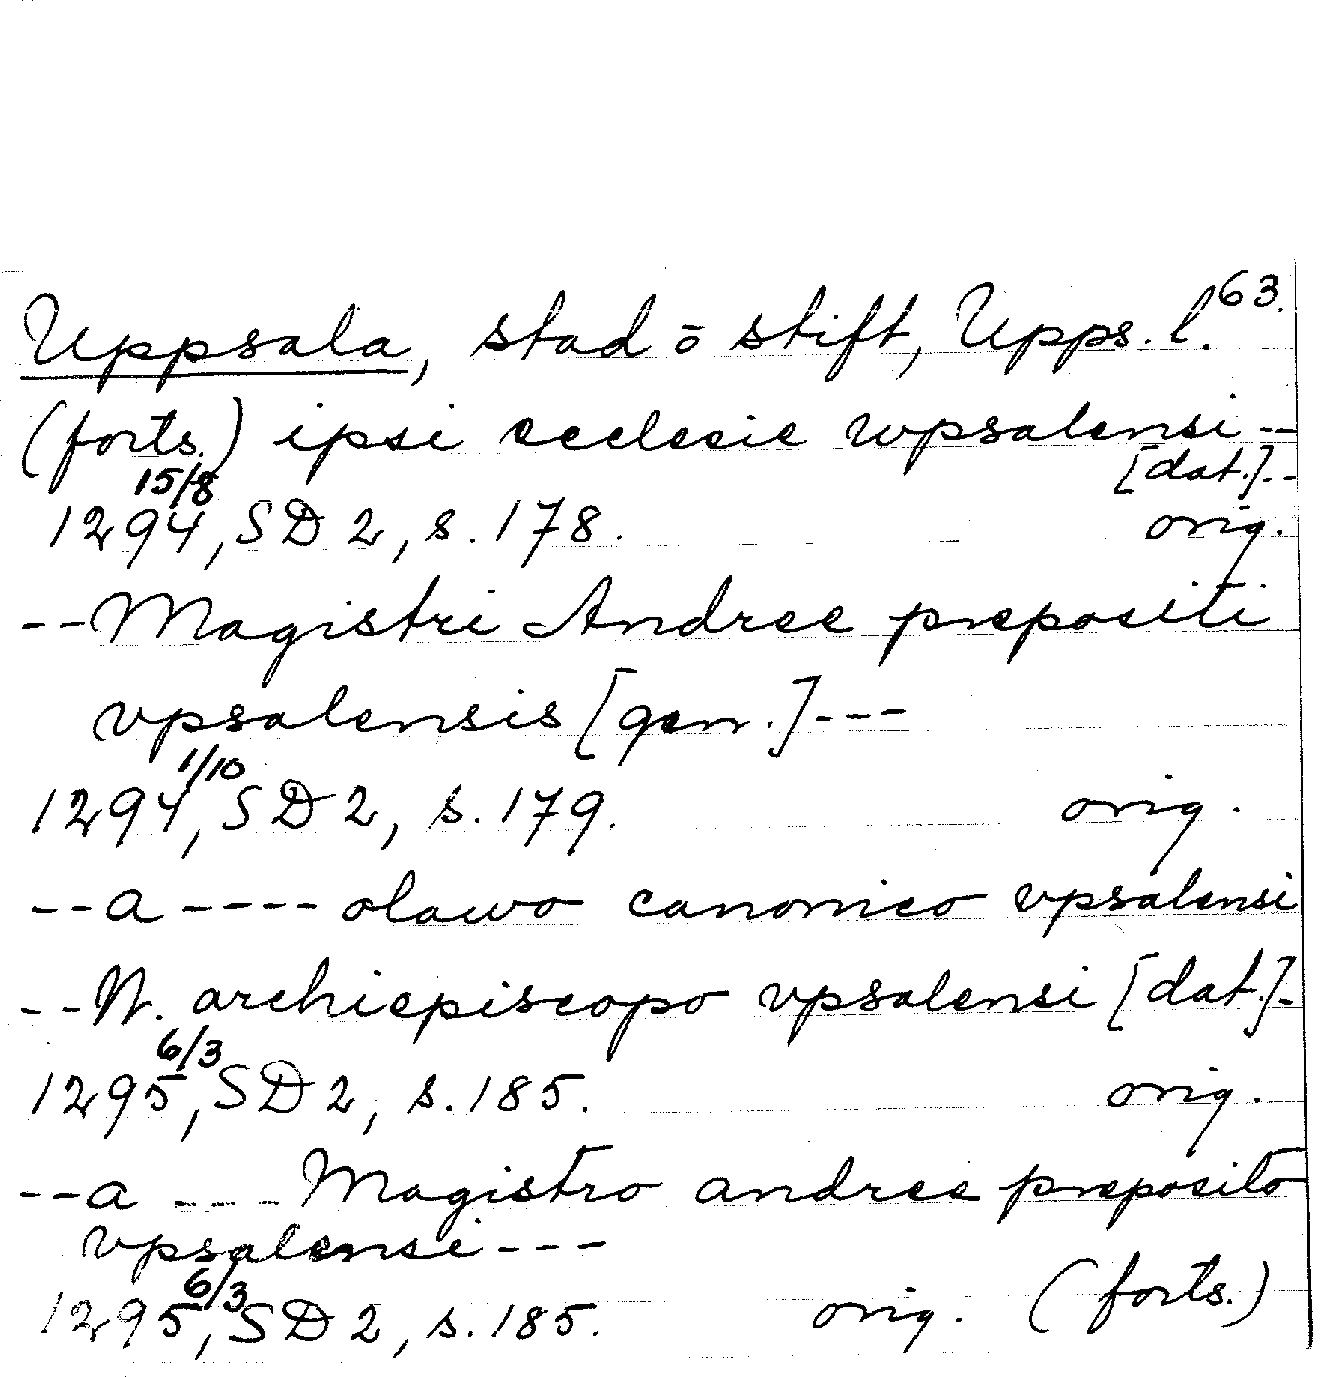 63.
Uppsala, stad o stift, Upps. l.
(forts.) ipsi ecclesie wpsalensi --
[dat.]--
15/8
1294, SD 2, s. 178. orig.
--Magistri Andree prepositi
vpsalensis [gen.]---
1/10
1294, SD 2, s. 179. orig.
--a ---- olawo canonico vpsalensi
--N. archiepiscopo vpsalensi [dat.]-
6/3
1295, SD 2, s. 185. orig.
--a --- Magistro andree preposito
vpsalensi ---
6/3
1295, SD 2, s. 185. orig. (forts.)